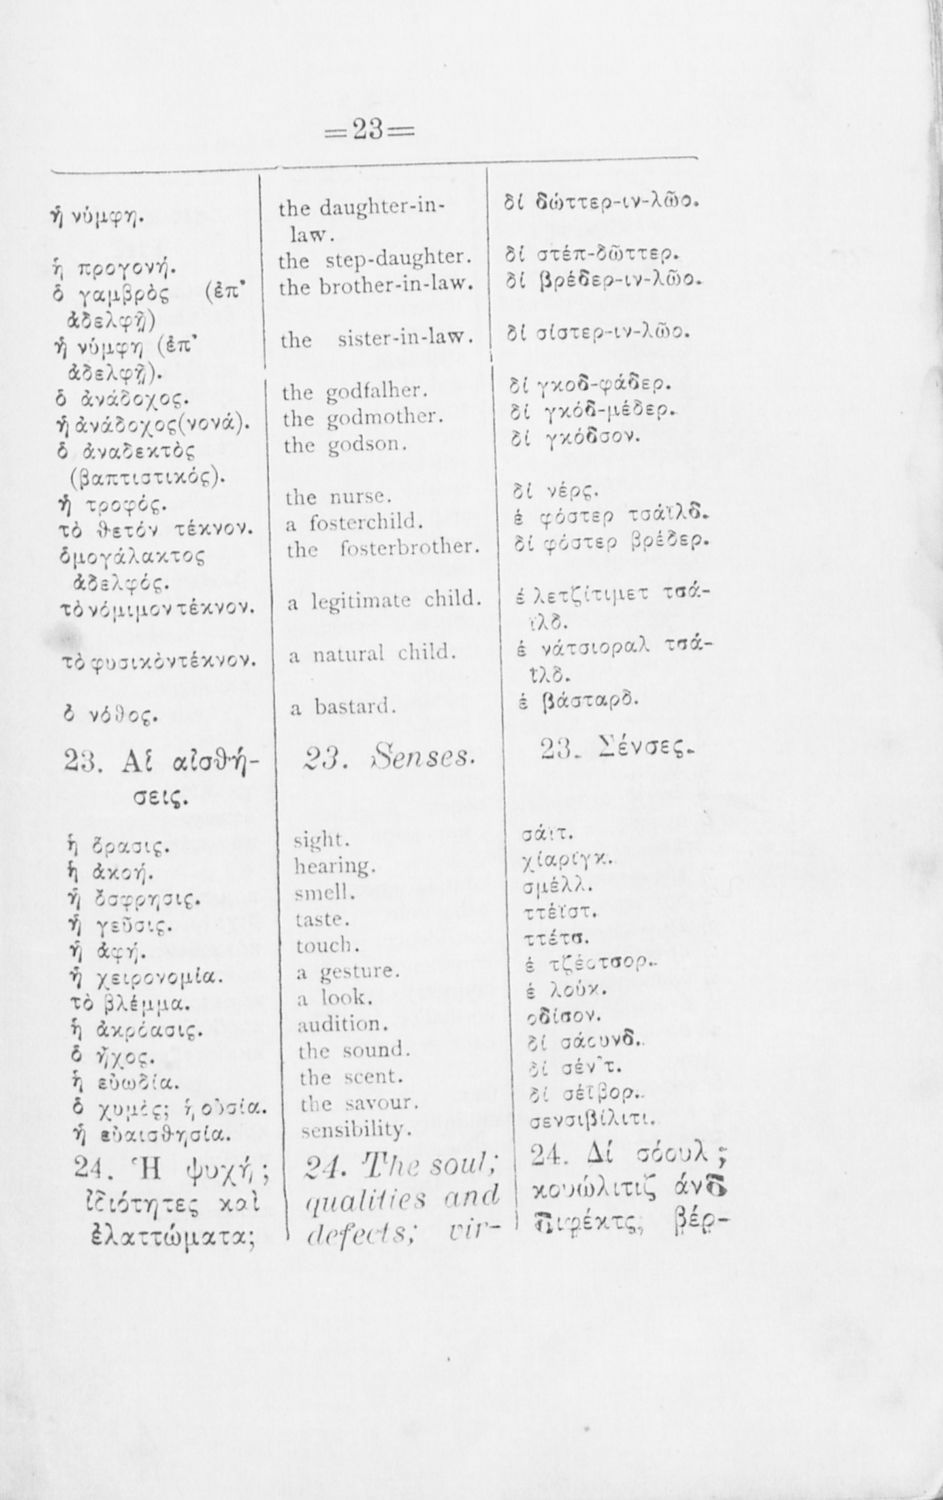 =23=
ἡ νύμφη.
the daughter-in-
δί δώττερ-ιν-λῶο.
law.
ἡ προγονή.
the step-daughter.
δί στέπ-δῶττερ.
ὁ γαμβρὸς (ἐπ'
the brother-in-law.
δί βρέδερ-ιν-λῶο.
ἀδελφῇ)
ἡ νύμφη (ἐπ'
the sister-in-law.
δί σίστερ-ιν-λῶο.
ἀδελφῇ).
ὁ ἀνάδοχος.
the godfalher.
δί γκοδ-φάδερ.
ἡ ἀνάδοχος(νονά).
the godmother.
δί γκόδ-μέδερ.
ὁ ἀναδεκτὸς
the godson.
δί γκόδσον.
(βαπτιστικός).
ἡ τροφός.
the nurse.
δί νέρς.
τὸ θετόν τέκνον.
a fosterchild.
ἐ φόστερ τσάϊλδ.
ὁμογάλακτος
the fosterbrother.
δί φόστερ βρέδερ.
ἀδελφός.
τὸ νόμιμον τέκνον.
a legitimate child.
ἐ λετζίτιμετ τσά-
ϊλδ.
τὸ φυσικὸν τέκνον.
a natural child.
ἐ νάτσιοραλ τσά-
ϊλδ.
ὁ νόθος.
a bastard.
ἐ βάσταρδ.
23. Αἱ αἰσθή-
23. Senses.
23. Σένσες.
σεις.
ἡ ὅρασις.
sight.
σάϊτ.
ἡ ἀκοή.
hearing.
χίαριγκ.
ἡ ὄσφρησις.
smell.
σμέλλ.
ἡ γεῦσις.
taste.
ττέϊστ.
ἡ ἀφή.
touch.
ττέτσ.
ἡ χειρονομία.
a gesture.
ἐ τζέστσορ.
τὸ βλέμμα.
a look.
ἐ λούκ.
ἡ ἀκρόασις.
audition.
οδίσον.
ὁ ἦχος.
the sound.
δί σάουνδ.
ἡ εὐωδία.
the scent.
δί σέν'τ.
ὁ χυμὸς; ἡ οὐσία.
the savour.
δί σέϊβορ.
ἡ εὐαισθησία.
sensibility.
σενσιβίλιτι.
24. Ἡ ψυχή;
24. The soul;
24. Δί σόουλ;
ἰδιότητες καὶ
qualities and
κουώλιτιζ άνδ
ἐλαττώματα;
defects; vir-
διφέκτς, βέρ-